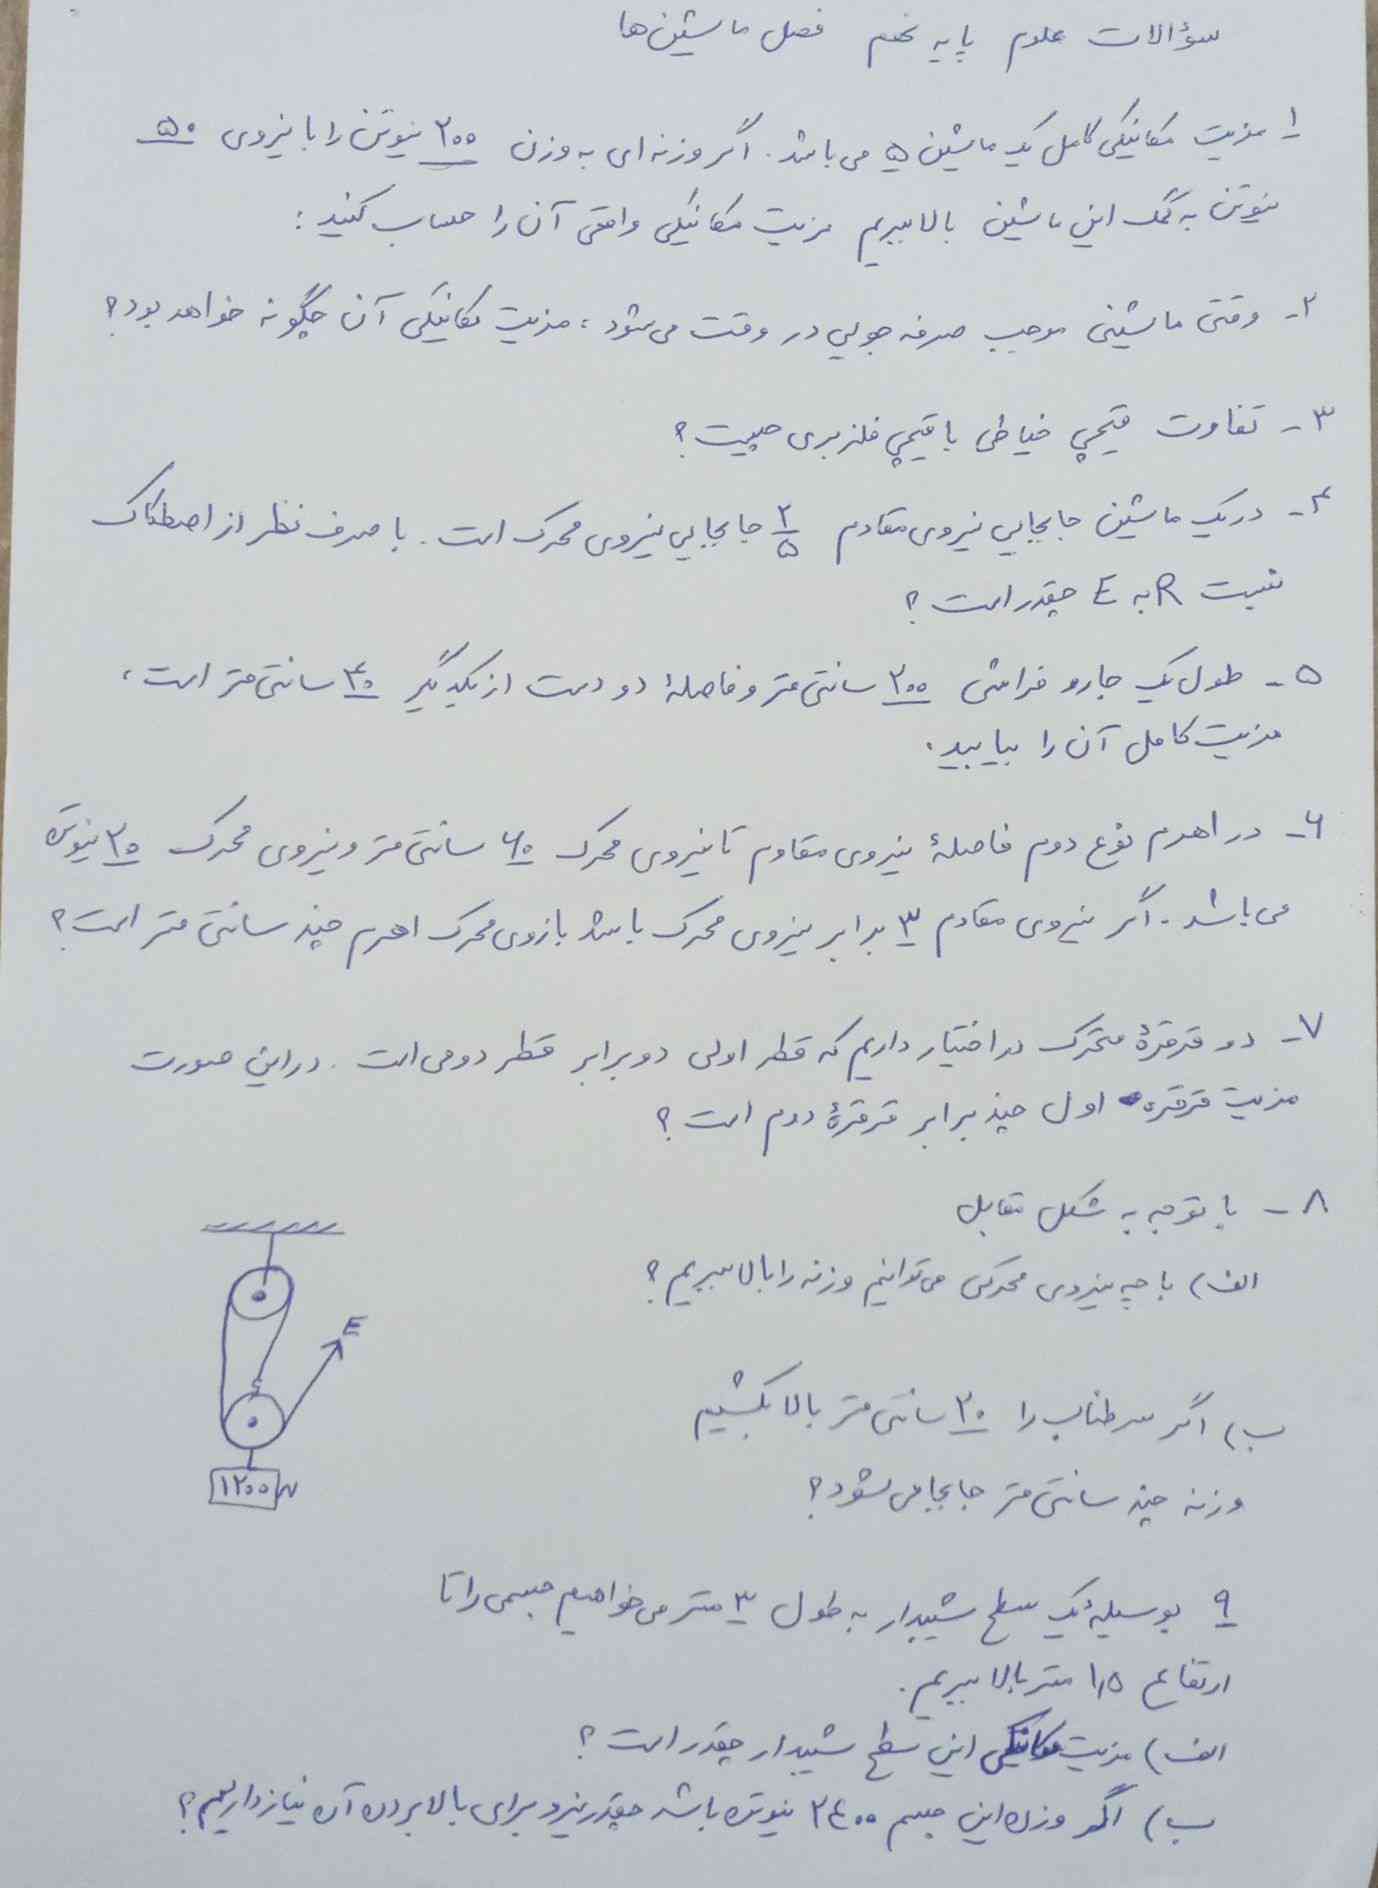 سؤالات علوم پایه نهم فصل ماشین‌ها
۱ مزیت مکانیکی کامل یک ماشین ۵ می‌باشد. اگر وزنه‌ای به وزن ۲۰۰ نیوتن را با نیروی ۵۰
نیوتن به کمک این ماشین بالا ببریم مزیت مکانیکی واقعی آن را حساب کنید:
۲- وقتی ماشینی موجب صرفه‌جویی در وقت می‌شود، مزیت مکانیکی آن چگونه خواهد بود؟
۳- تفاوت قیچی خیاطی با قیچی فلزبری چیست؟
۴- در یک ماشین جابجایی نیروی مقاوم ۲/۵ جابجایی نیروی محرک است. با صرف نظر از اصطکاک
نسبت R به E چقدر است؟
۵- طول یک جارو فراشی ۲۰۰ سانتی‌متر و فاصلهٔ دو دست از یکدیگر ۴۰ سانتی‌متر است،
مزیت کامل آن را بیابید.
۶- در اهرم نوع دوم فاصلهٔ نیروی مقاوم تا نیروی محرک ۶۰ سانتی‌متر و نیروی محرک ۲۰ نیوتن
می‌باشد. اگر نیروی مقاوم ۳ برابر نیروی محرک باشد بازوی محرک اهرم چند سانتی‌متر است؟
۷- دو قرقرهٔ متحرک در اختیار داریم که قطر اولی دو برابر قطر دومی است. در این صورت
مزیت قرقره اول چند برابر قرقرهٔ دوم است؟
۸- با توجه به شکل مقابل
الف) با چه نیروی محرکی می‌توانیم وزنه را بالا ببریم؟
E
ب) اگر سر طناب را ۳۰ سانتی‌متر بالا بکشیم
۱۲۰۰ N
وزنه چند سانتی‌متر جابجا می‌شود؟
۹ بوسیلهٔ یک سطح شیبدار به طول ۳ متر می‌خواهیم جسمی را تا
ارتفاع ۱٫۵ متر بالا ببریم.
الف) مزیت مکانیکی این سطح شیبدار چقدر است؟
ب) اگر وزن این جسم ۲۴۰۰ نیوتن باشد چقدر نیرو برای بالا بردن آن نیاز داریم؟